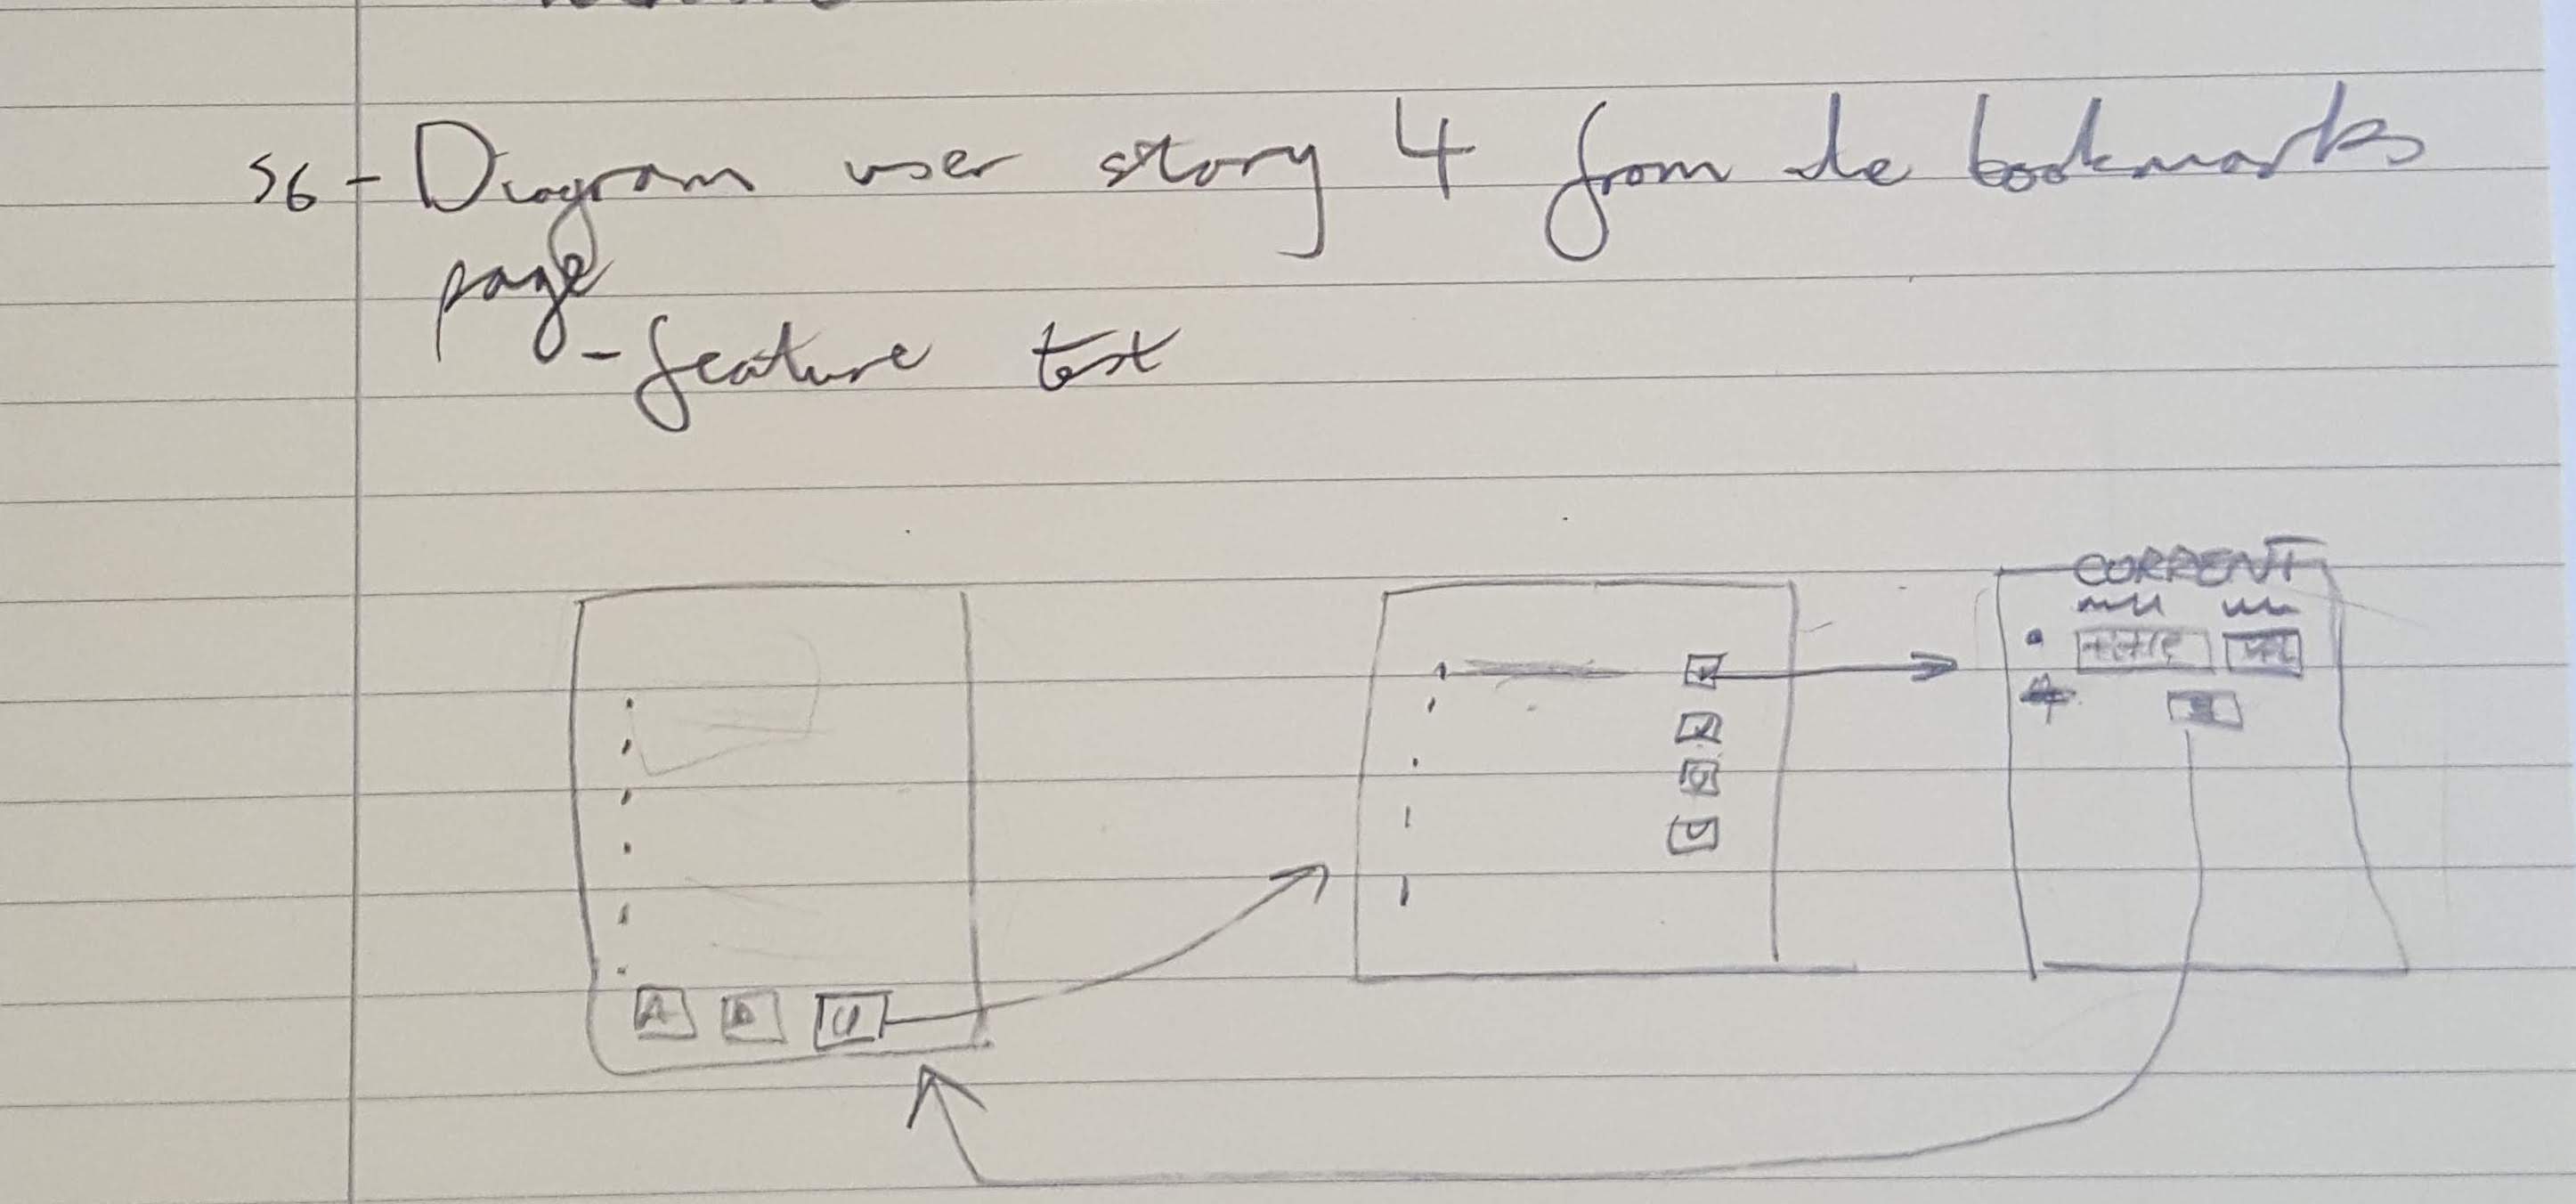 S6 - Diagram user story 4 from the bookmarks
page
- feature test
CURRENT
title
A U
U
U